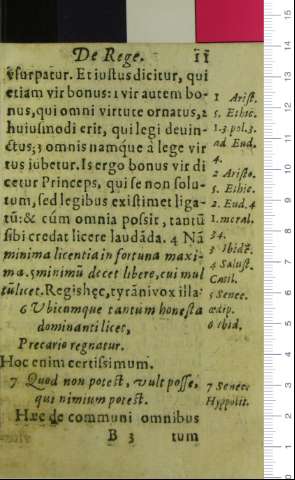 De Rege. 11
vsurpatur. Et iustus dicitur, qui
etiam vir bonus: 1 vir autem bo-
nus, qui omni virtute ornatus, 2
huiusmodi erit, qui legi deuin-
ctus; 3 omnis namque à lege vir
tus iubetur. Is ergo bonus vir di
cetur Princeps, qui se non solu-
tum, sed legibus existimet liga-
tũ: & cúm omnia possit, tantũ
sibi credat licere laudãda. 4 Nã
minima licentia in fortuna maxi-
ma. 5 minimũ decet libere, cui mul
tũ licet. Regis hęc, tyrãni vox illa:
6 Vbicumque tantum honesta
dominanti licet,
Precario regnatur.
Hoc enim certissimum.
7 Quod non potest, vult posse,
qui nimium potest.
Hæc de communi omnibus
B 3 tum
1 Arist.
5. Ethic.
1. 3. pol. 3.
ad Eud.
4.
2 Aristo.
5. Ethic.
2. Eud. 4
1. moral.
34.
3 Ibidẽ.
4 Salust.
Catil.
5 Senec.
œdip.
6 ibid.
7 Senec.
Hyppolit.